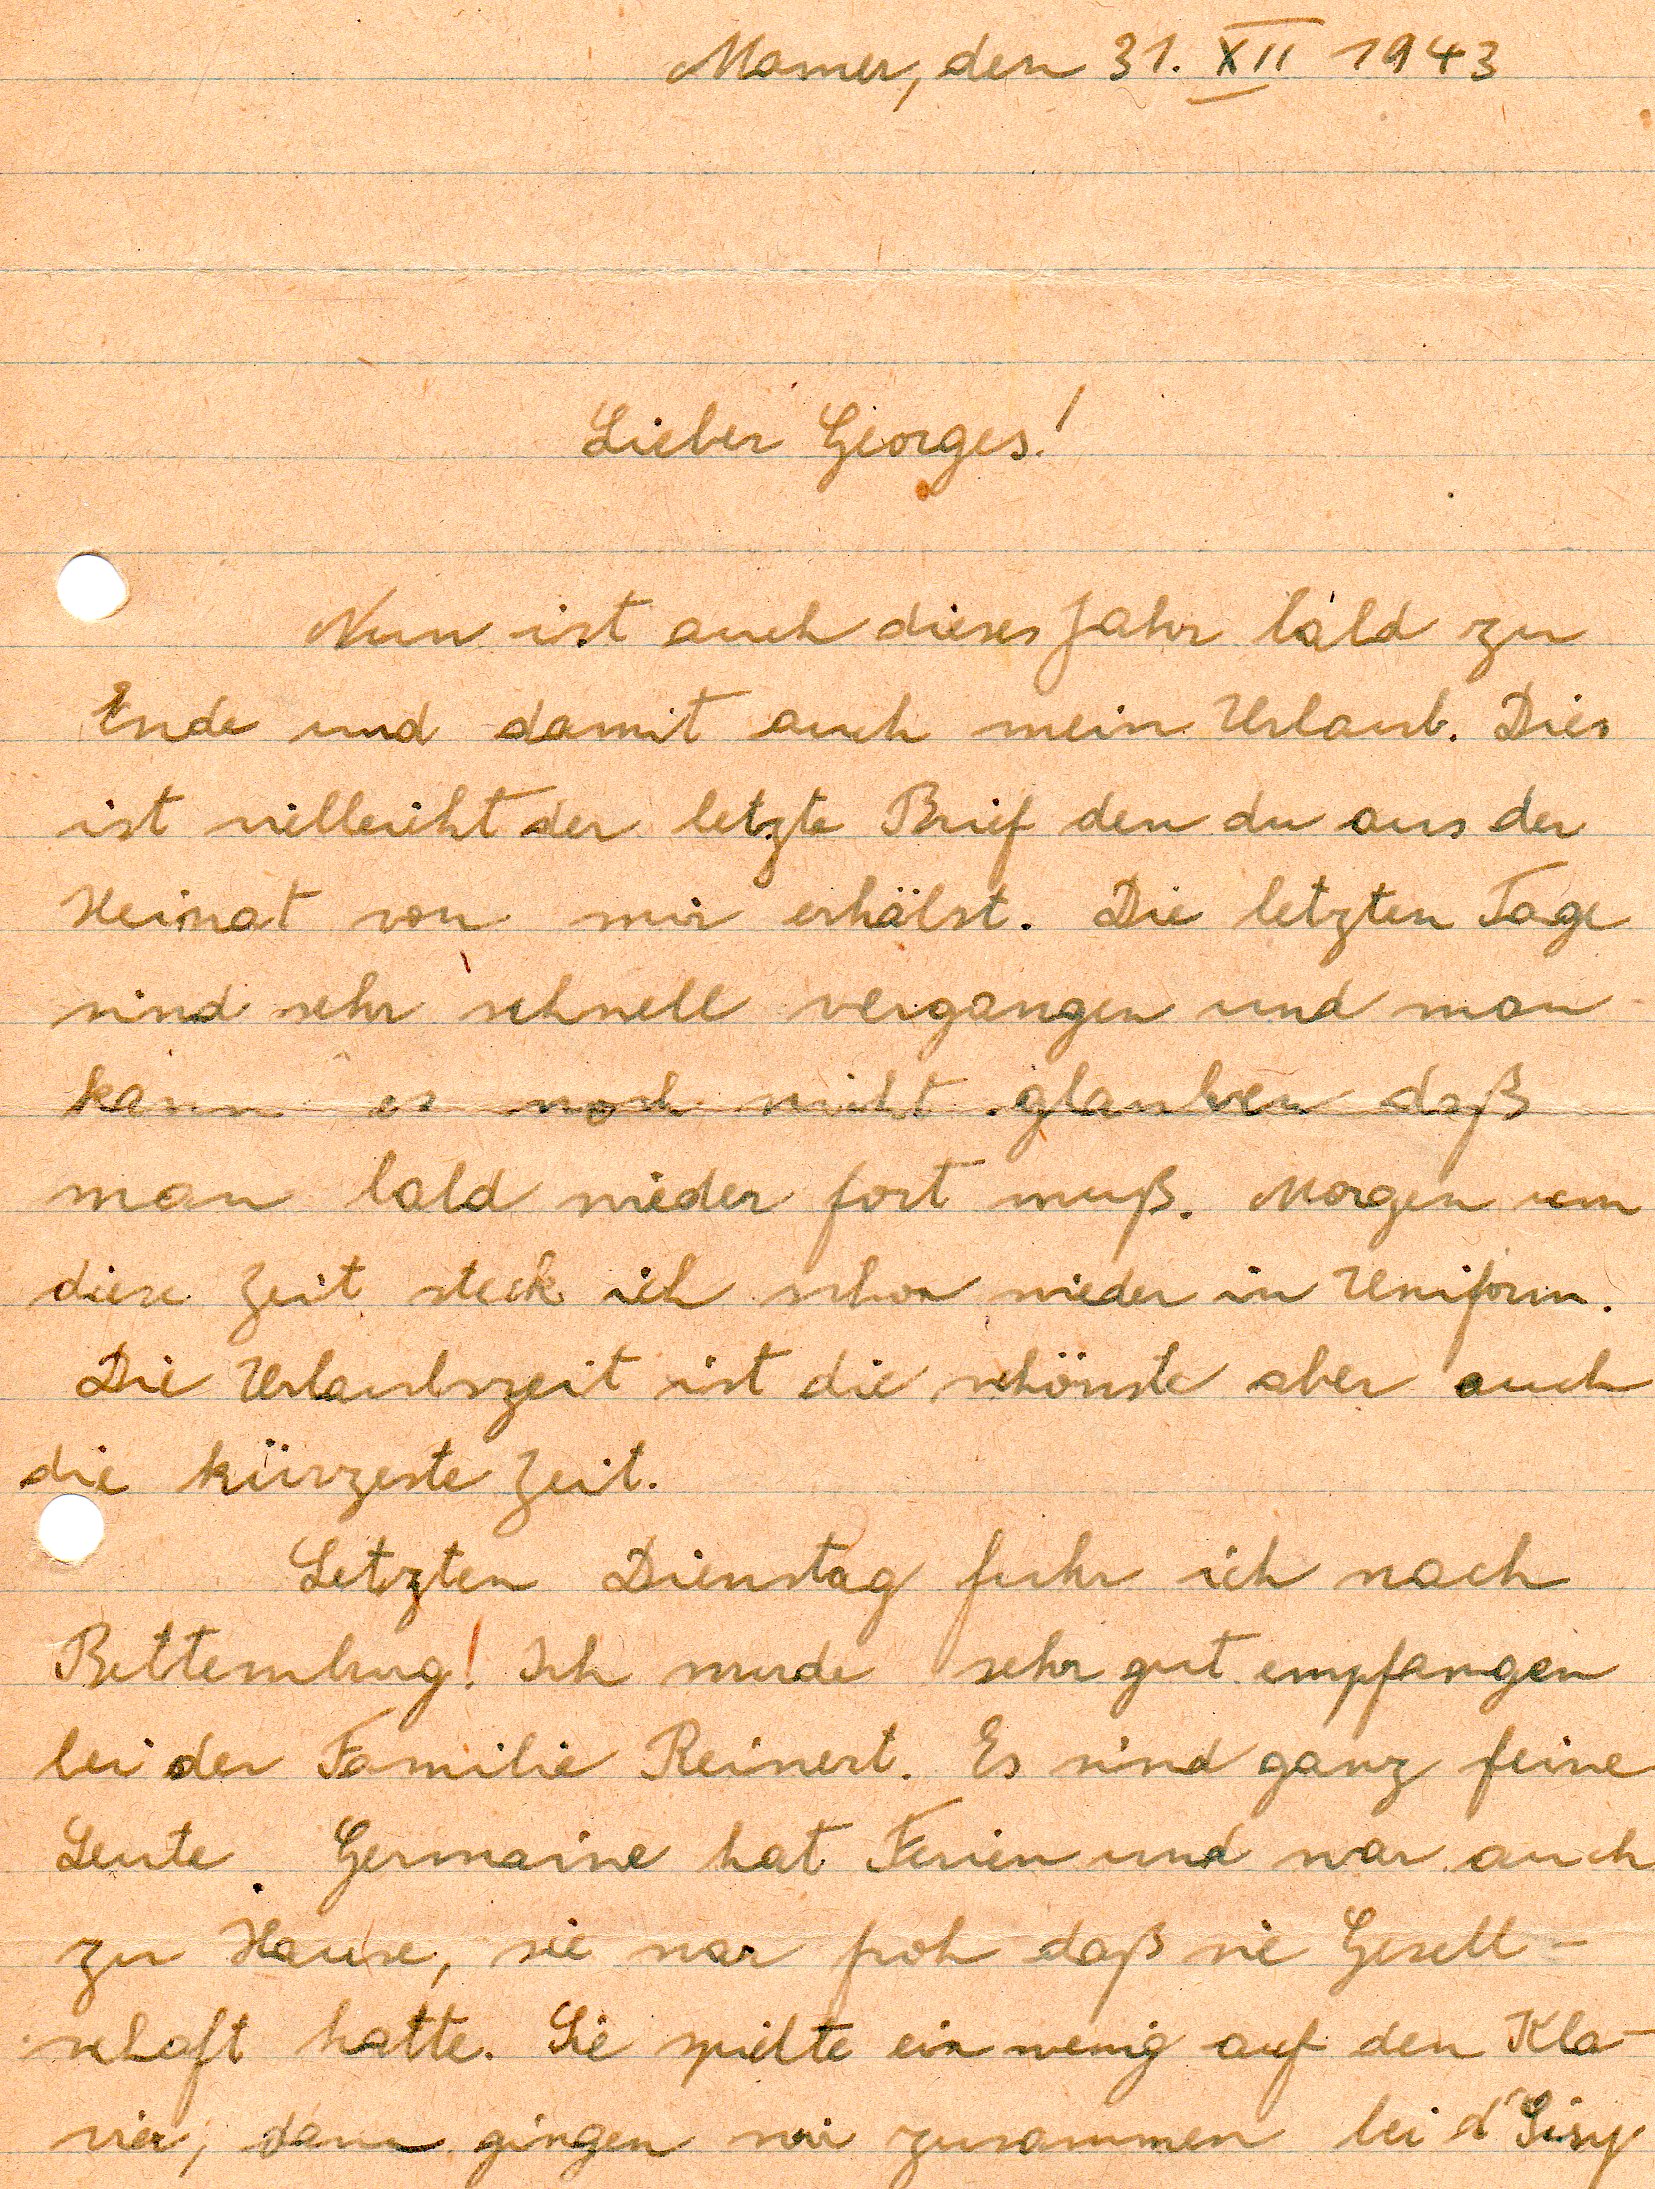 Mamer, den 31. XII 1943
Lieber Georges!
Nun ist auch dieses Jahr bald zu
Ende und damit auch mein Urlaub. Dies
ist vielleicht der letzte Brief den du aus der
Heimat von mir erhälst. Die letzten Tage
sind sehr schnell vergangen und man
kann es noch nicht glauben daß
man bald wieder fort muß. Morgen um
diese Zeit steck ich schon wieder in Uniform.
Die Urlaubszeit ist die schönste aber auch
die kürzeste Zeit.
Letzten Dienstag fuhr ich nach
Bettemburg! Ich wurde sehr gut empfangen
bei der Familie Reinert. Es sind ganz feine
Leute. Germaine hat Ferien und war auch
zu Hause, sie war froh daß sie Gesell-
schaft hatte. Sie spielte ein wenig auf den Kla-
vier, dann gingen wir zusammen bei d'Lisy